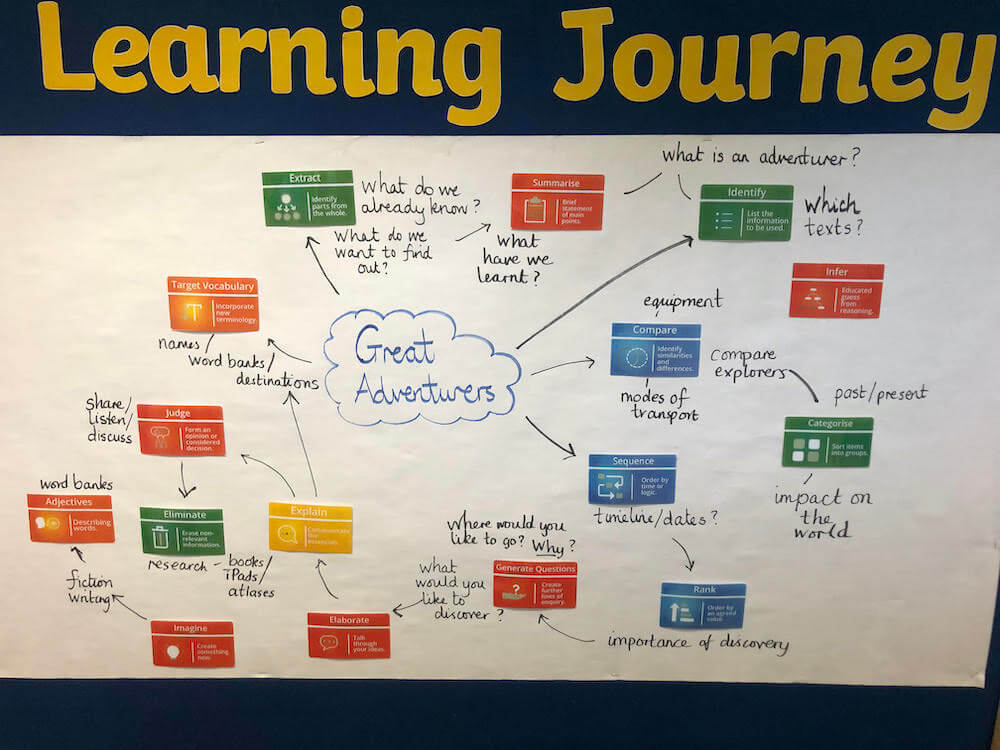 Learning Journey
what is an adventurer?
Extract
Identify
parts from
the whole.
What do we
already know?
What do we
want to find
out?
Summarise
Brief
statement
of main
points.
What
have we
learnt?
Identify
List the
information
to be used.
which
texts?
Infer
Educated
guess
from
reasoning.
Target Vocabulary
Incorporate
new
terminology.
names/
word banks/
destinations
Great
Adventurers
equipment
Compare
Identify
similarities
and
differences.
compare
explorers
modes of
transport
past/present
Categorise
Sort items
into groups.
impact on
the
world
share/
listen/
discuss
Judge
Form an
opinion or
considered
decision.
Sequence
Order by
time or
logic.
timeline/dates?
word banks
Adjectives
Describing
words.
Eliminate
Erase non-
relevant
information.
research - books/
iPads/
atlases
Explain
Communicate
the
essentials.
Where would you
like to go? Why?
what
would you
like to
discover?
Generate Questions
Create
further
lines of
enquiry.
Rank
Order by
an agreed
value.
importance of discovery
fiction
writing
Imagine
Create
something
new.
Elaborate
Talk
through
your ideas.